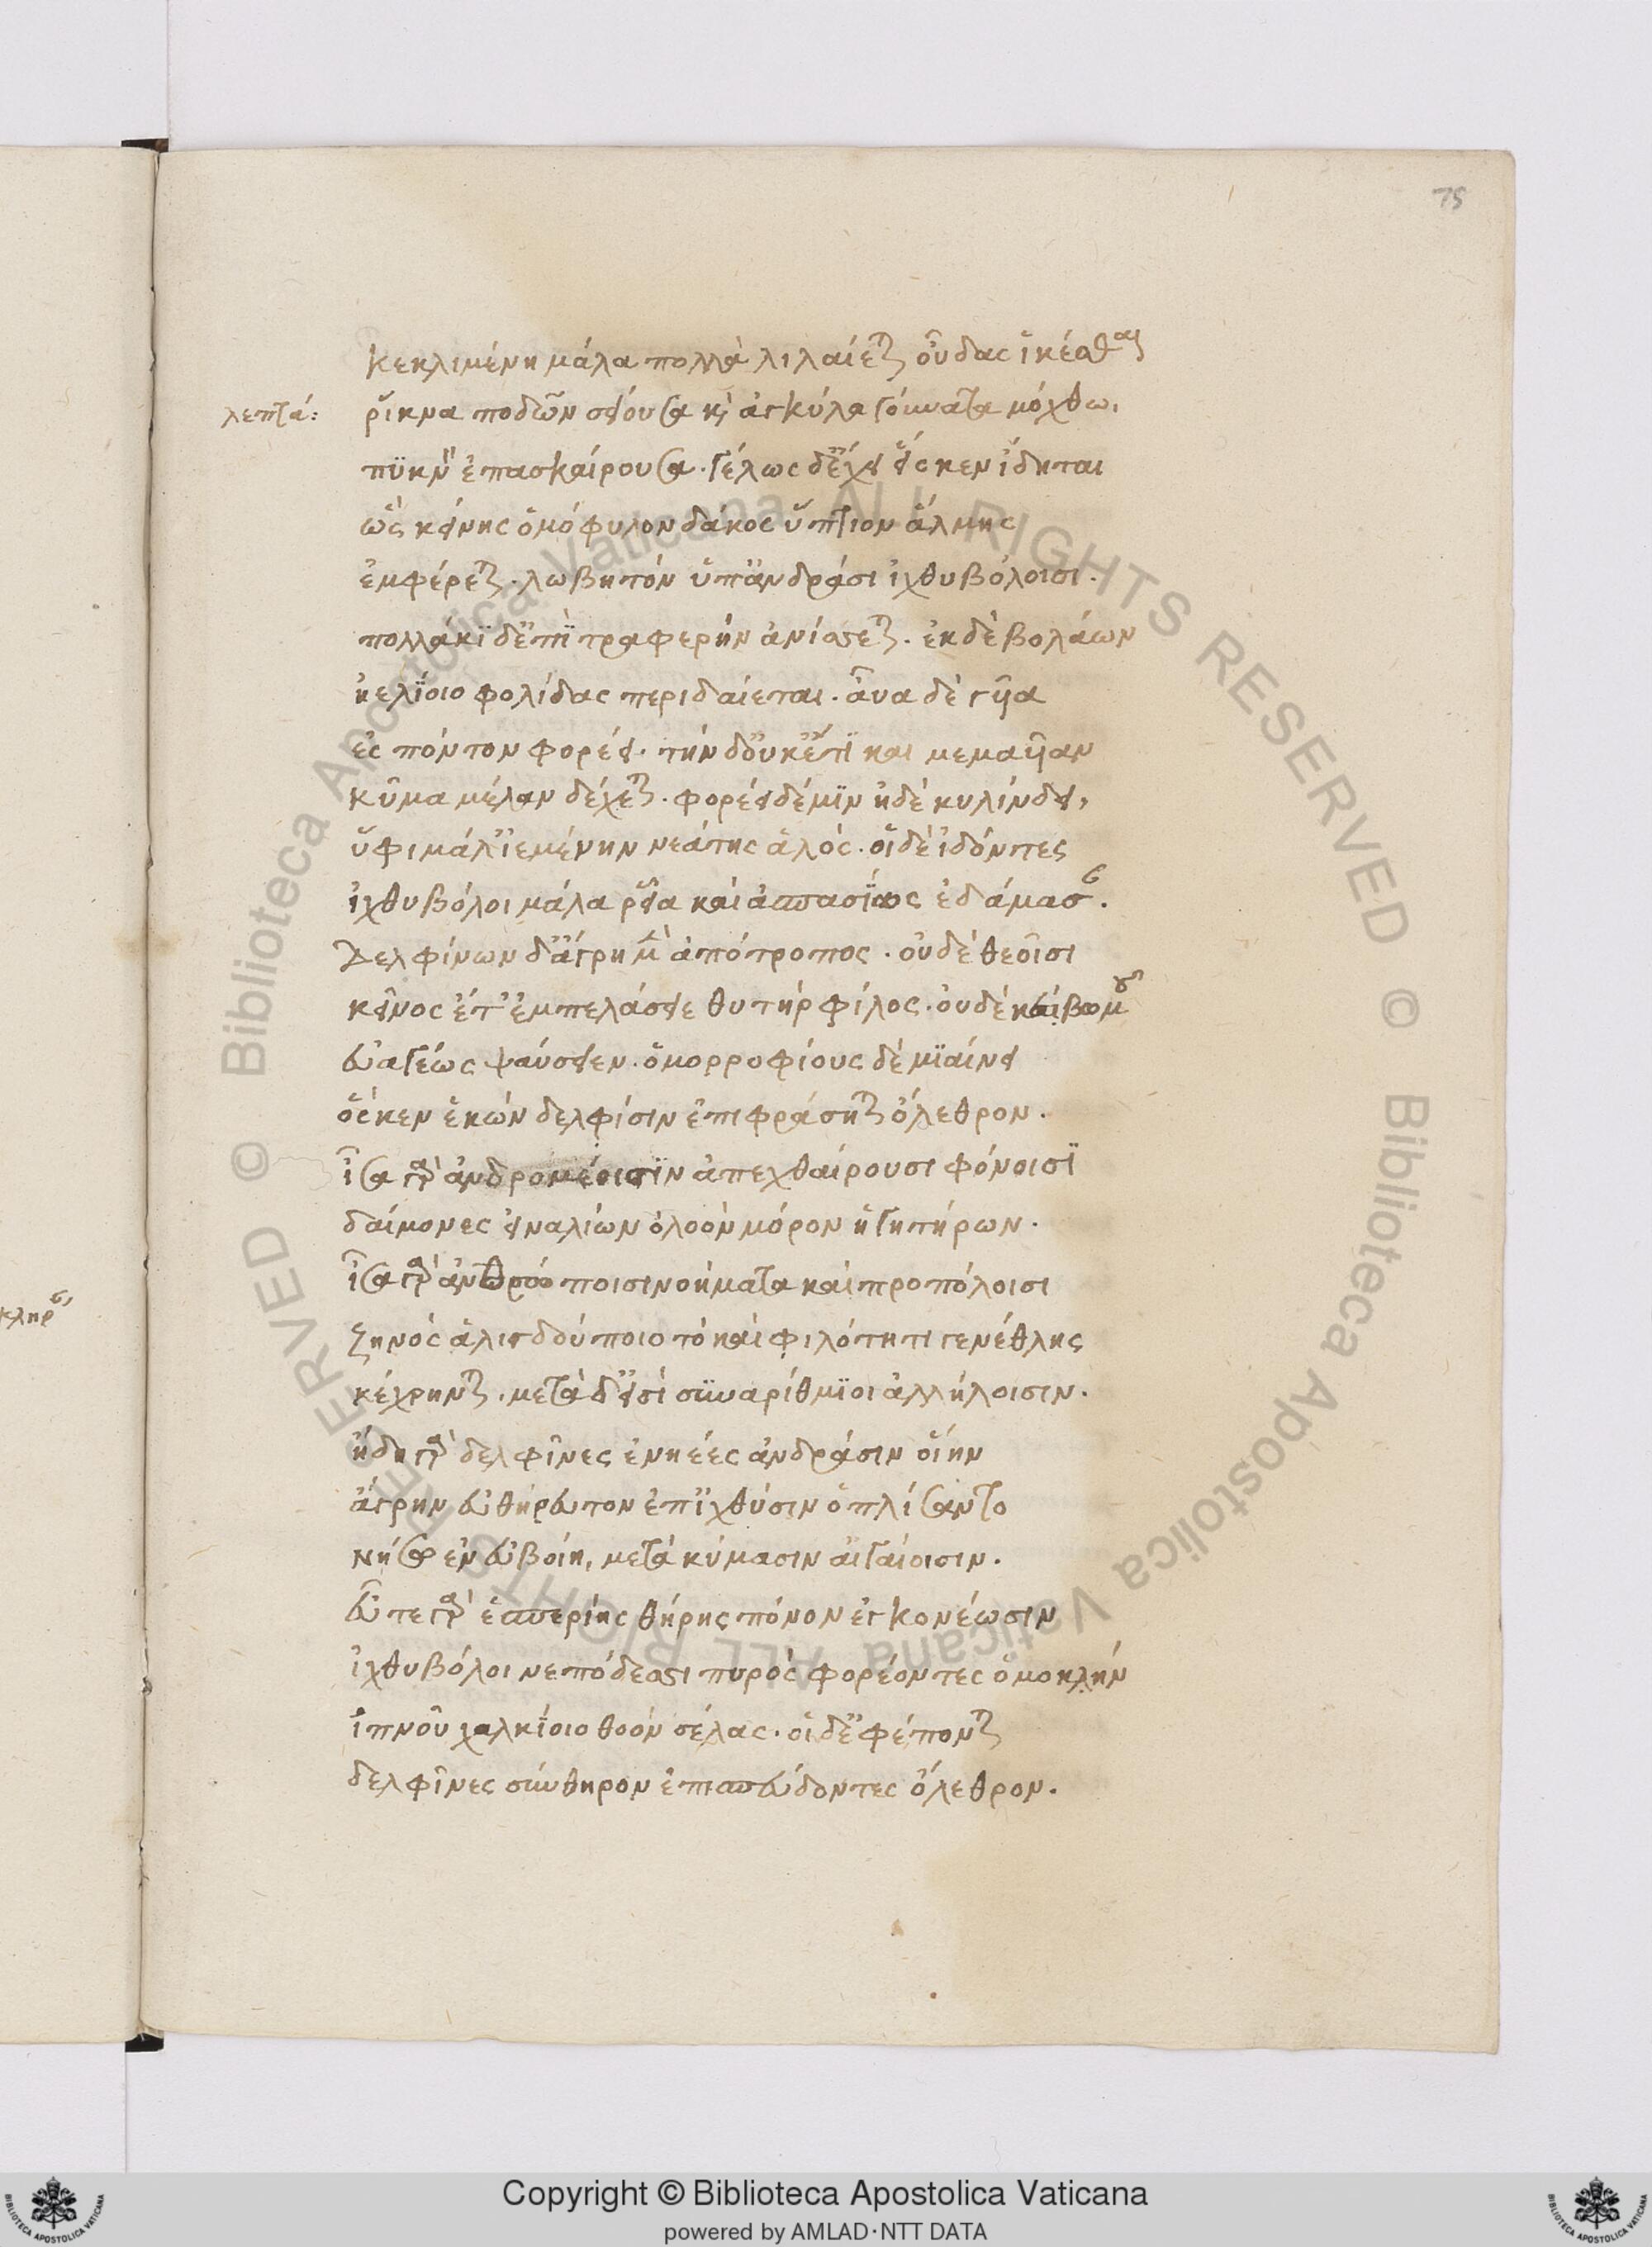 75
κεκλιμένη μάλα πολλὰ λιλαίεται οὖδας ἱκέσθαι
λεπτά:
ῥικνὰ ποδῶν σείουσα κ̀ ἀγκύλα γούνατα μόχθω,
πϋκν' ἐπασκαίρουσα. γέλως δ' ἔχει ὅς κεν ἴδηται
ὡς κείνης ὁμόφυλον δάκος ὕπτιον ἅλμης
ἐμφέρεται. λωβητὸν ὑπ' ἀνδράσι ἰχθυβόλοισι.
πολλάκϊ δ' ἔπϊ τραφερὴν ἀνίσεται. ἐκ δὲ βολάων
ἠελΐοιο φολίδας περιδαίεται. ἆυα δὲ γυῖα
ἐς πόντον φορέει. τὴν δ' οὐκέτϊ και μεμαυῖαν
κῦμα μέλαν δέχεται. φορέει δέ μϊν ἠδὲ κυλίνδει,
ὕφι μάλ' ἱεμένην νεάτης ἁλός. οἱ δὲ ἰδόντες
ἰχθυβόλοι μάλα ῥεῖα καὶ ἀσπασΐως ἐδάμασσαν.
Δελφίνων δ' ἄγρη μὲν ἀπότροπος. οὐδὲ θεοῖσι
κεῖνος ἔτ' ἐμπελάσειε θυτὴρ φίλος. οὐδέ κε βωμοῦ
εὐαγέως ψαύσειεν. ὁμορροφίους δὲ μϊαίνει
ὅς κεν ἑκὼν δελφίσιν ἐπιφράσηται ὄλεθρον.
ἶσα γὰρ ἀνδρομέοισϊν ἀπεχθαίρουσι φόνοισϊ
δαίμονες εἰναλίων ὀλοὸν μόρον ἡγητήρων.
ἶσα γὰρ ἀνθρώποισι νοήματα καὶ προπόλοισι
ζηνὸς ἁλιγδούποιο τὸ καὶ φιλότητι γενέθλης
κέχρηνται. μετὰ δ' εἰσὶ συναρίθμϊοι ἀλλήλοισιν.
ἤδη γὰρ δελφῖνες ἐνηέες ἀνδράσιν οἵην
ἄγρην εὐθήρευτον ἐπ' ἰχθύσιν ὁπλίσαντο
νήσω ἐν εὐβοίη, μετὰ κύμασιν αἰγαίοισιν.
εὖτε γὰρ ἑσπερίης θήρης πόνον ἐγκονέωσιν
ἰχθυβόλοι νεπόδεσσι πυρὸς φορέοντες ὁμοκλὴν
ἱπνοῦ χαλκΐοιο θοὸν σέλας. οἱ δ' ἐφέπονται
δελφῖνες σύνθηρον ἐπισπεύδοντες ὄλεθρον.
Copyright © Biblioteca Apostolica Vaticana
powered by AMLAD·NTT DATA
© Biblioteca Apostolica Vaticana ALL RIGHTS RESERVED © Biblioteca Apostolica Vaticana ALL RIGHTS RESERVED